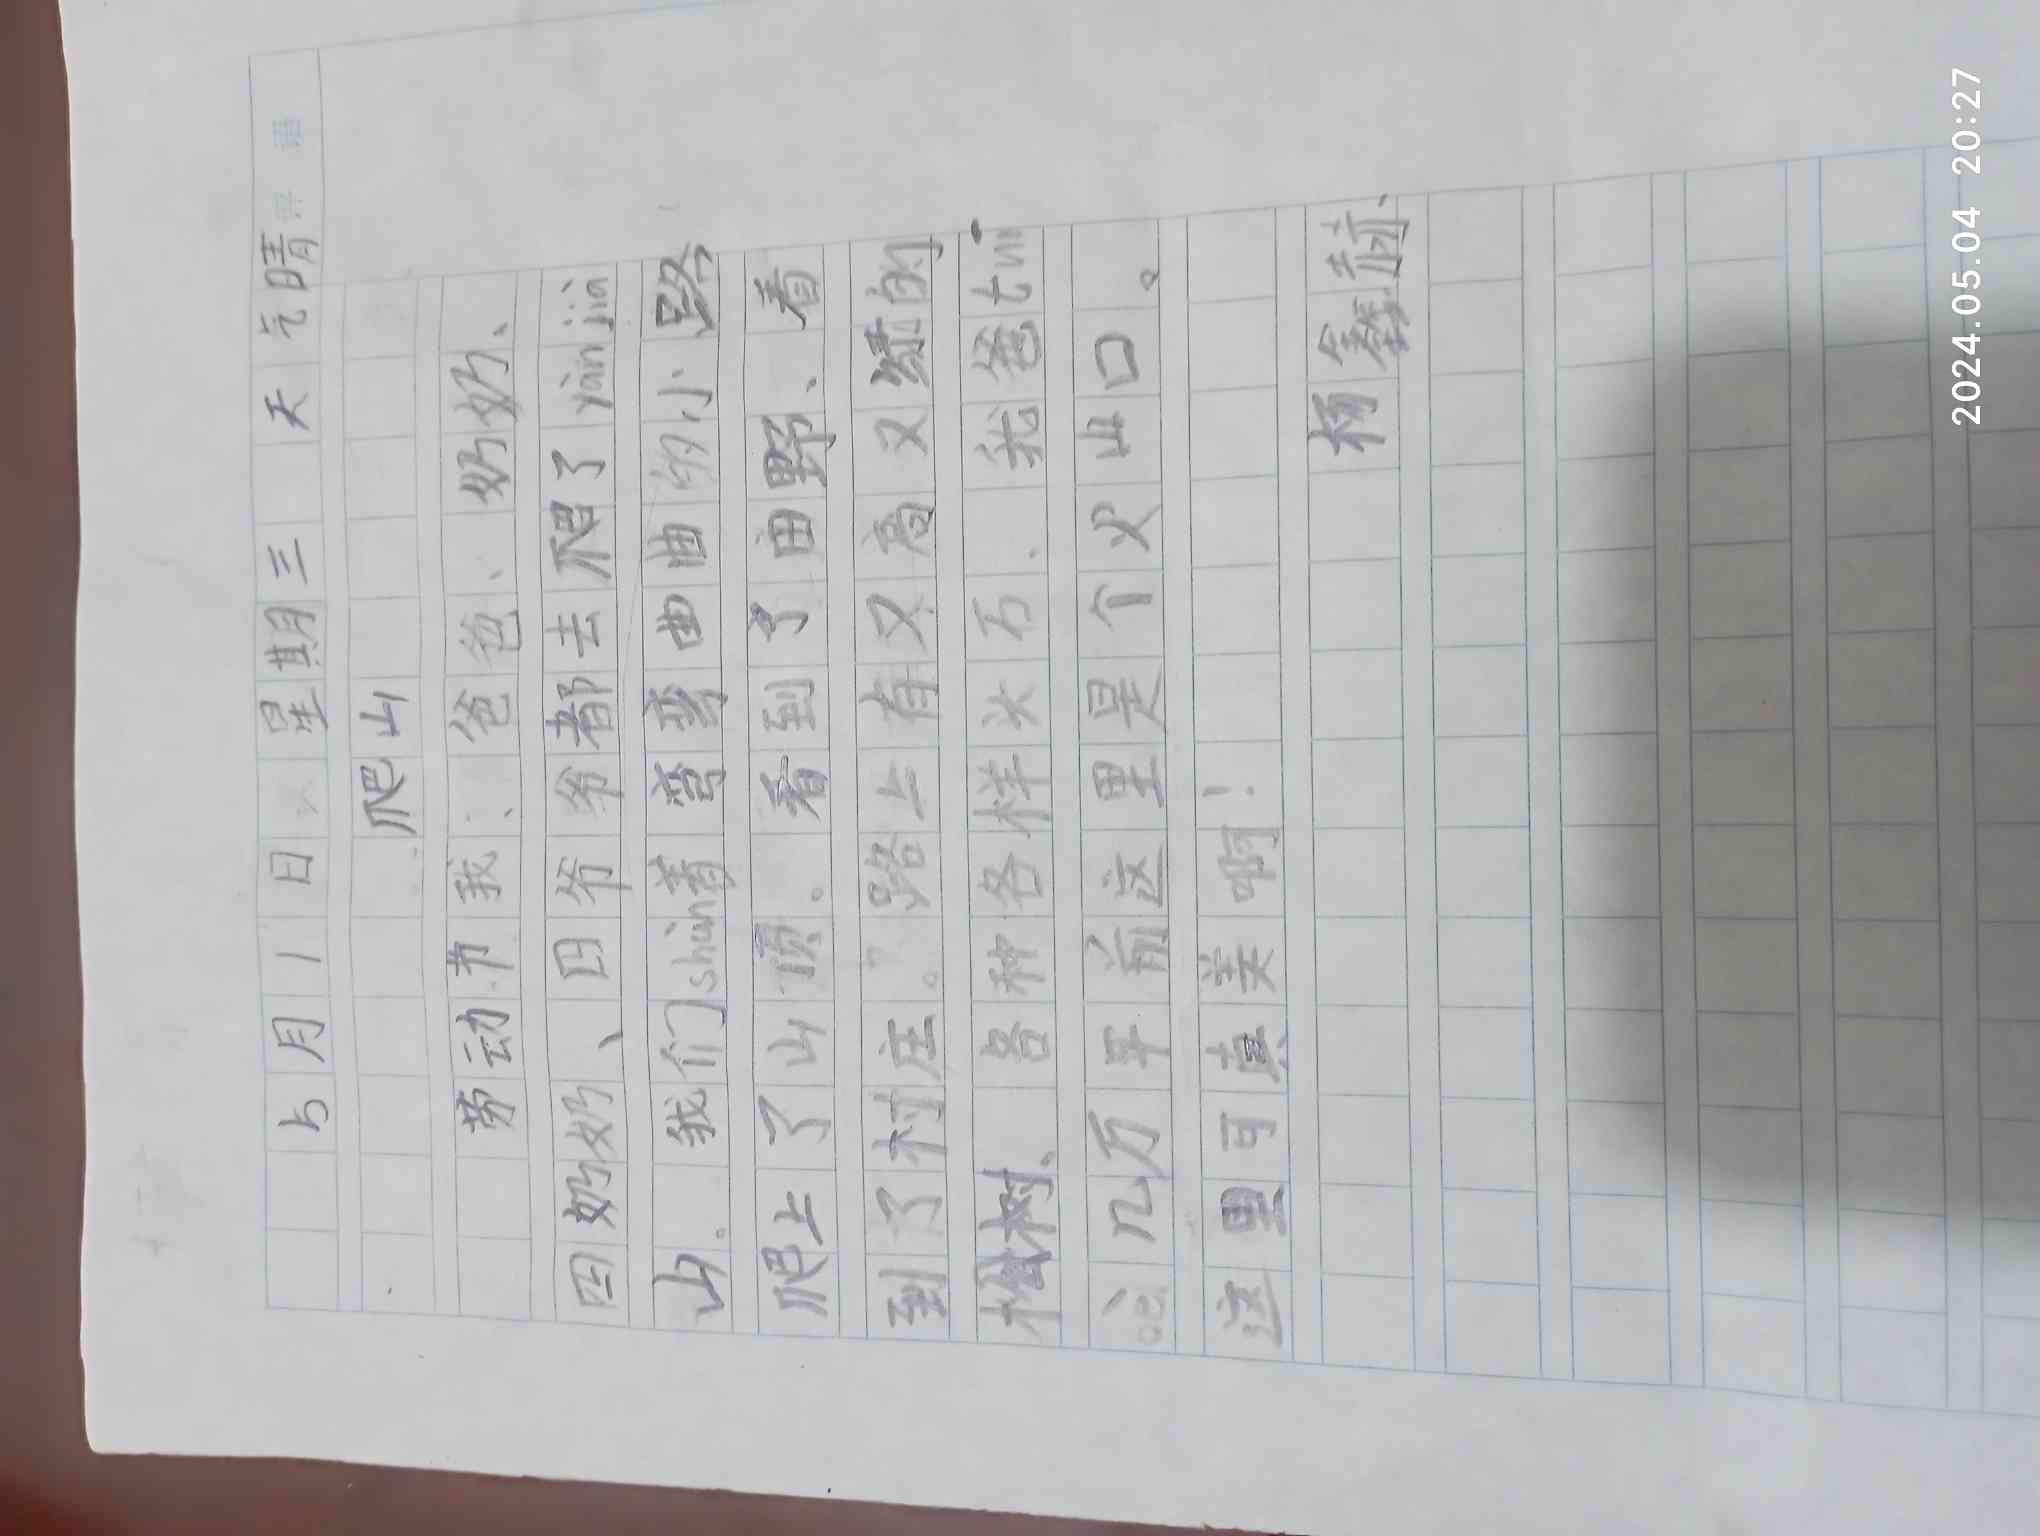 5月1日 星期三 天气晴
爬山
劳动节我、爸爸、奶奶、
四奶奶、四爷爷都去爬了yàn jià
山。我们shùn着弯弯曲曲的小路
爬上了山顶。看到了田野、看
到了村庄。路上有又高又绿的
松树、各种各样头石、我爸
几万年前这里是个火山口。
这里可真美啊!
杨鑫
2024.05.04 20:27